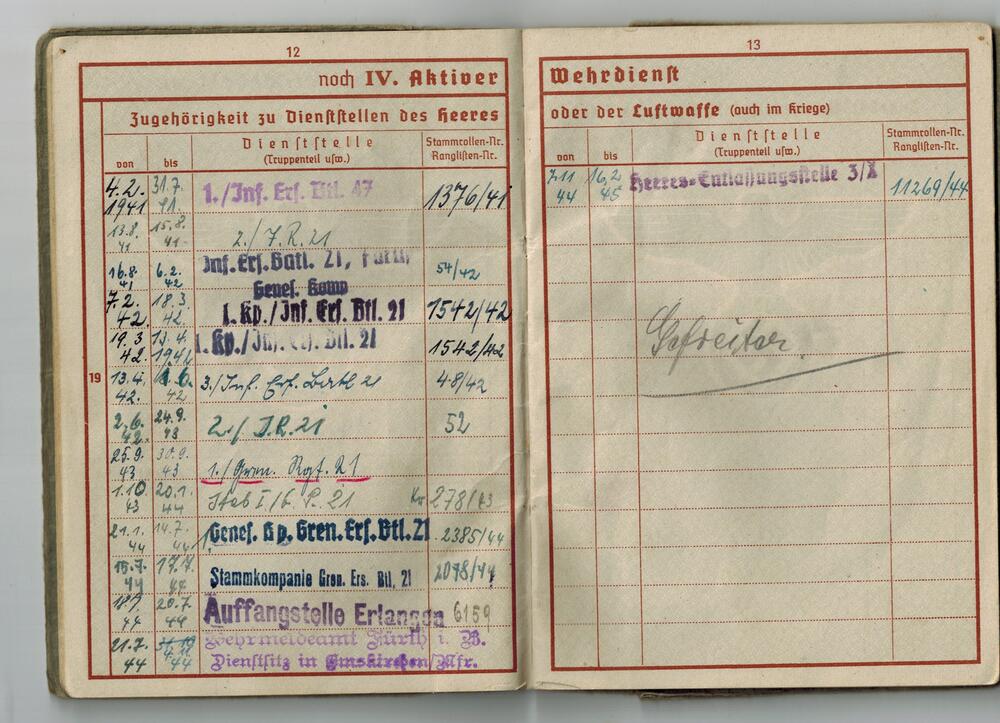 12
noch IV. Aktiver
Zugehörigkeit zu Dienststellen des Heeres
von
bis
Dienststelle
(Truppenteil usw.)
Stammrollen-Nr.
Ranglisten-Nr.
4.2. 1941 31.7. 41. 1./Inf. Ers. Btl. 47 1376/41
13.8. 41 15.8. 41 2./J.R. 21
16.8. 41 6.2. 42 Inf. Ers. Batl. 21, Fürth 54/42
Genes. Komp
7.2. 42. 18.3 42. 1. Kp./Inf. Ers. Btl. 21 1542/42
19.3 42. 1. Kp./Inf. Ers. Btl. 21 1542/42
19
13.4. 42. 1.6. 42 3./Inf. Ers. Batl 21 48/42
2.6. 42. 24.9. 43 2./J.R. 21 52
25.9. 43 30.9. 43 1./Gren. Rgt. 21
1.10 43 20.1. 44 Stab I/G.R. 21 278/43
21.1. 44 14.7. 44 Genes. Kp. Gren. Ers. Btl. 21 2385/44
15.7. 44 17.7. 44 Stammkompanie Gren. Ers. Btl. 21 2098/44
18.7. 44 20.7. 44 Auffangstelle Erlangen 6159
21.7. 44 Wehrmeldeamt Fürth i. B.
Dienstsitz in Emskirchen/Mfr.
13
Wehrdienst
oder der Luftwaffe (auch im Kriege)
von
bis
Dienststelle
(Truppenteil usw.)
Stammrollen-Nr.
Ranglisten-Nr.
7.11 44 16.2 45 Heeres-Entlassungsstelle 3/X 11269/44
Gefreiter.